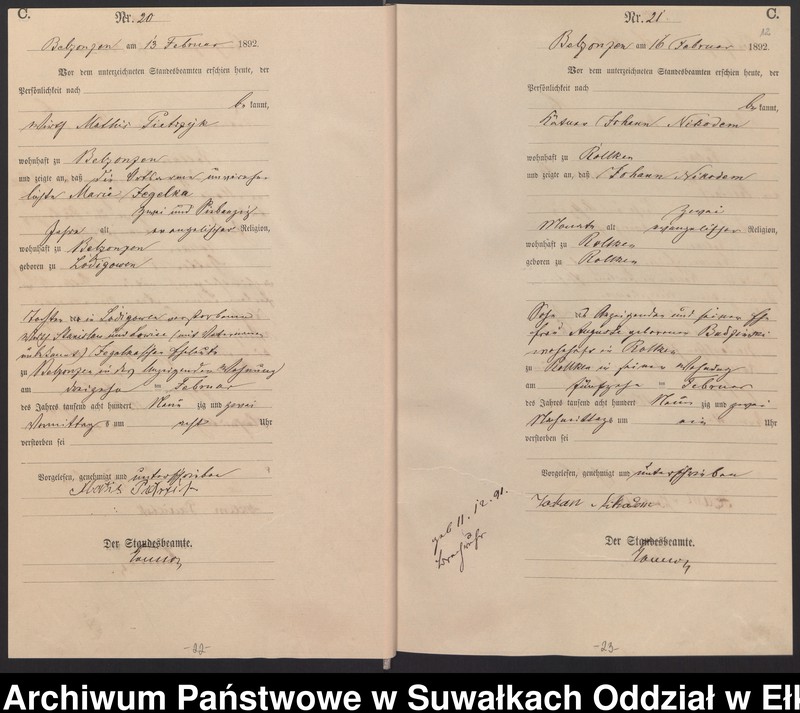 C.
Nr. 20
Belzonzen am 13 Februar 1892.
Vor dem unterzeichneten Standesbeamten erschien heute, der
Persönlichkeit nach
bekannt,
Wirth Mathis Pietrzyk
wohnhaft zu Belzonzen
und zeigte an, daß die Ortsarme unverehe-
lichte Marie Jegelka
zwei und Siebenzig
Jahre alt evangelischer Religion,
wohnhaft zu Belzonzen
geboren zu Lodigowen
Tochter der in Lodigowen verstorbenen
Wirth Stanislau und Louise (mit Vatername
unbekannt) Jegelkaschen Eheleute
zu Belzonzen in des Anzeigenden Wohnung
am dreizehn ten Februar
des Jahres tausend acht hundert Neun zig und zwei
Vormittags um acht Uhr
verstorben sei
Vorgelesen, genehmigt und unterschrieben
Der Standesbeamte.
-22-
Nr. 21
C.
12
Belzonzen am 16 Februar 1892.
Vor dem unterzeichneten Standesbeamten erschien heute, der
Persönlichkeit nach
bekannt,
Käthner Johann Nikodem
wohnhaft zu Rollken
und zeigte an, daß Johann Nikodem
zwei
Monate alt evangelischer Religion,
wohnhaft zu Rollken
geboren zu Rollken
Sohn des Anzeigenden und seiner Ehe
frau Auguste geborenen
wohnhaft in Rollken
zu Rollken in seiner Wohnung
am fünfzehn ten Februar
des Jahres tausend acht hundert Neun zig und zwei
Nachmittags um ein Uhr
verstorben sei
Vorgelesen, genehmigt und unterschrieben
geb 11. 12. 91.
Der Standesbeamte.
-23-
Archiwum Państwowe w Suwałkach Oddział w Ełk